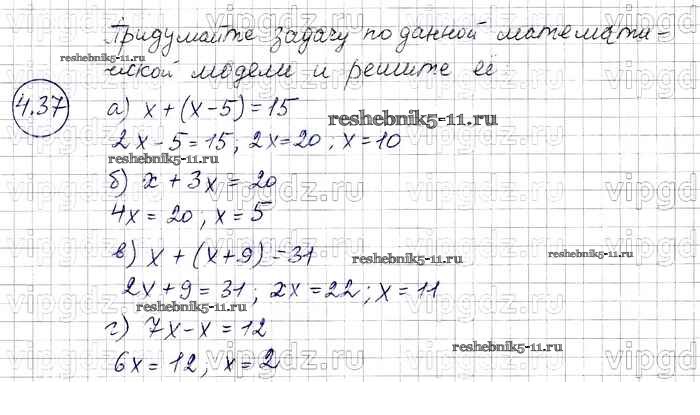 Придумайте задачу по данной математи-
ческой модели и решите её
4.37
а) x + (x - 5) = 15
2x - 5 = 15; 2x = 20; x = 10
б) x + 3x = 20
4x = 20, x = 5
в) x + (x + 9) = 31
2x + 9 = 31; 2x = 22; x = 11
г) 7x - x = 12
6x = 12; x = 2
reshebnik5-11.ru
reshebnik5-11.ru
reshebnik5-11.ru
reshebnik5-11.ru
reshebnik5-11.ru
reshebnik5-11.ru
vipgdz.ru